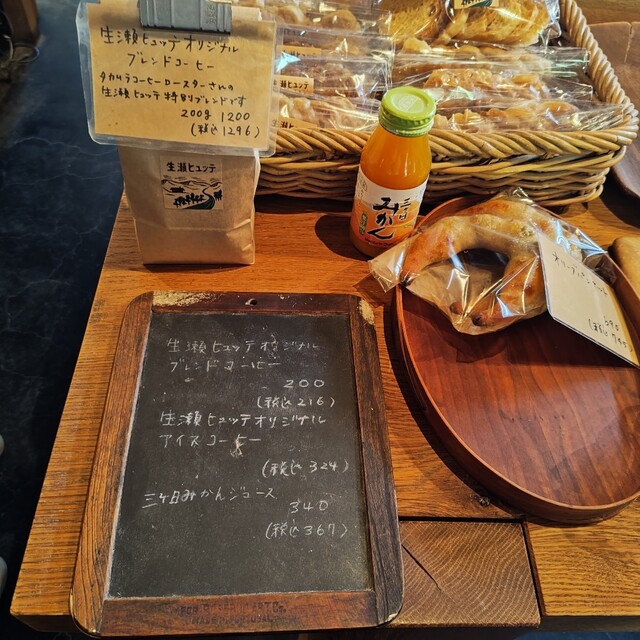 生瀬ヒュッテオリジナル
ブレンドコーヒー
タカムラコーヒーロースターさんの
生瀬ヒュッテ特別ブレンドです
200g 1200
(税込1296)
生瀬ヒュッテ
三ヶ日
みかん
生瀬ヒュッテオリジナル
ブレンドコーヒー
200
(税込216)
生瀬ヒュッテオリジナル
アイスコーヒー
(税込324)
三ヶ日みかんジュース
340
(税込367)